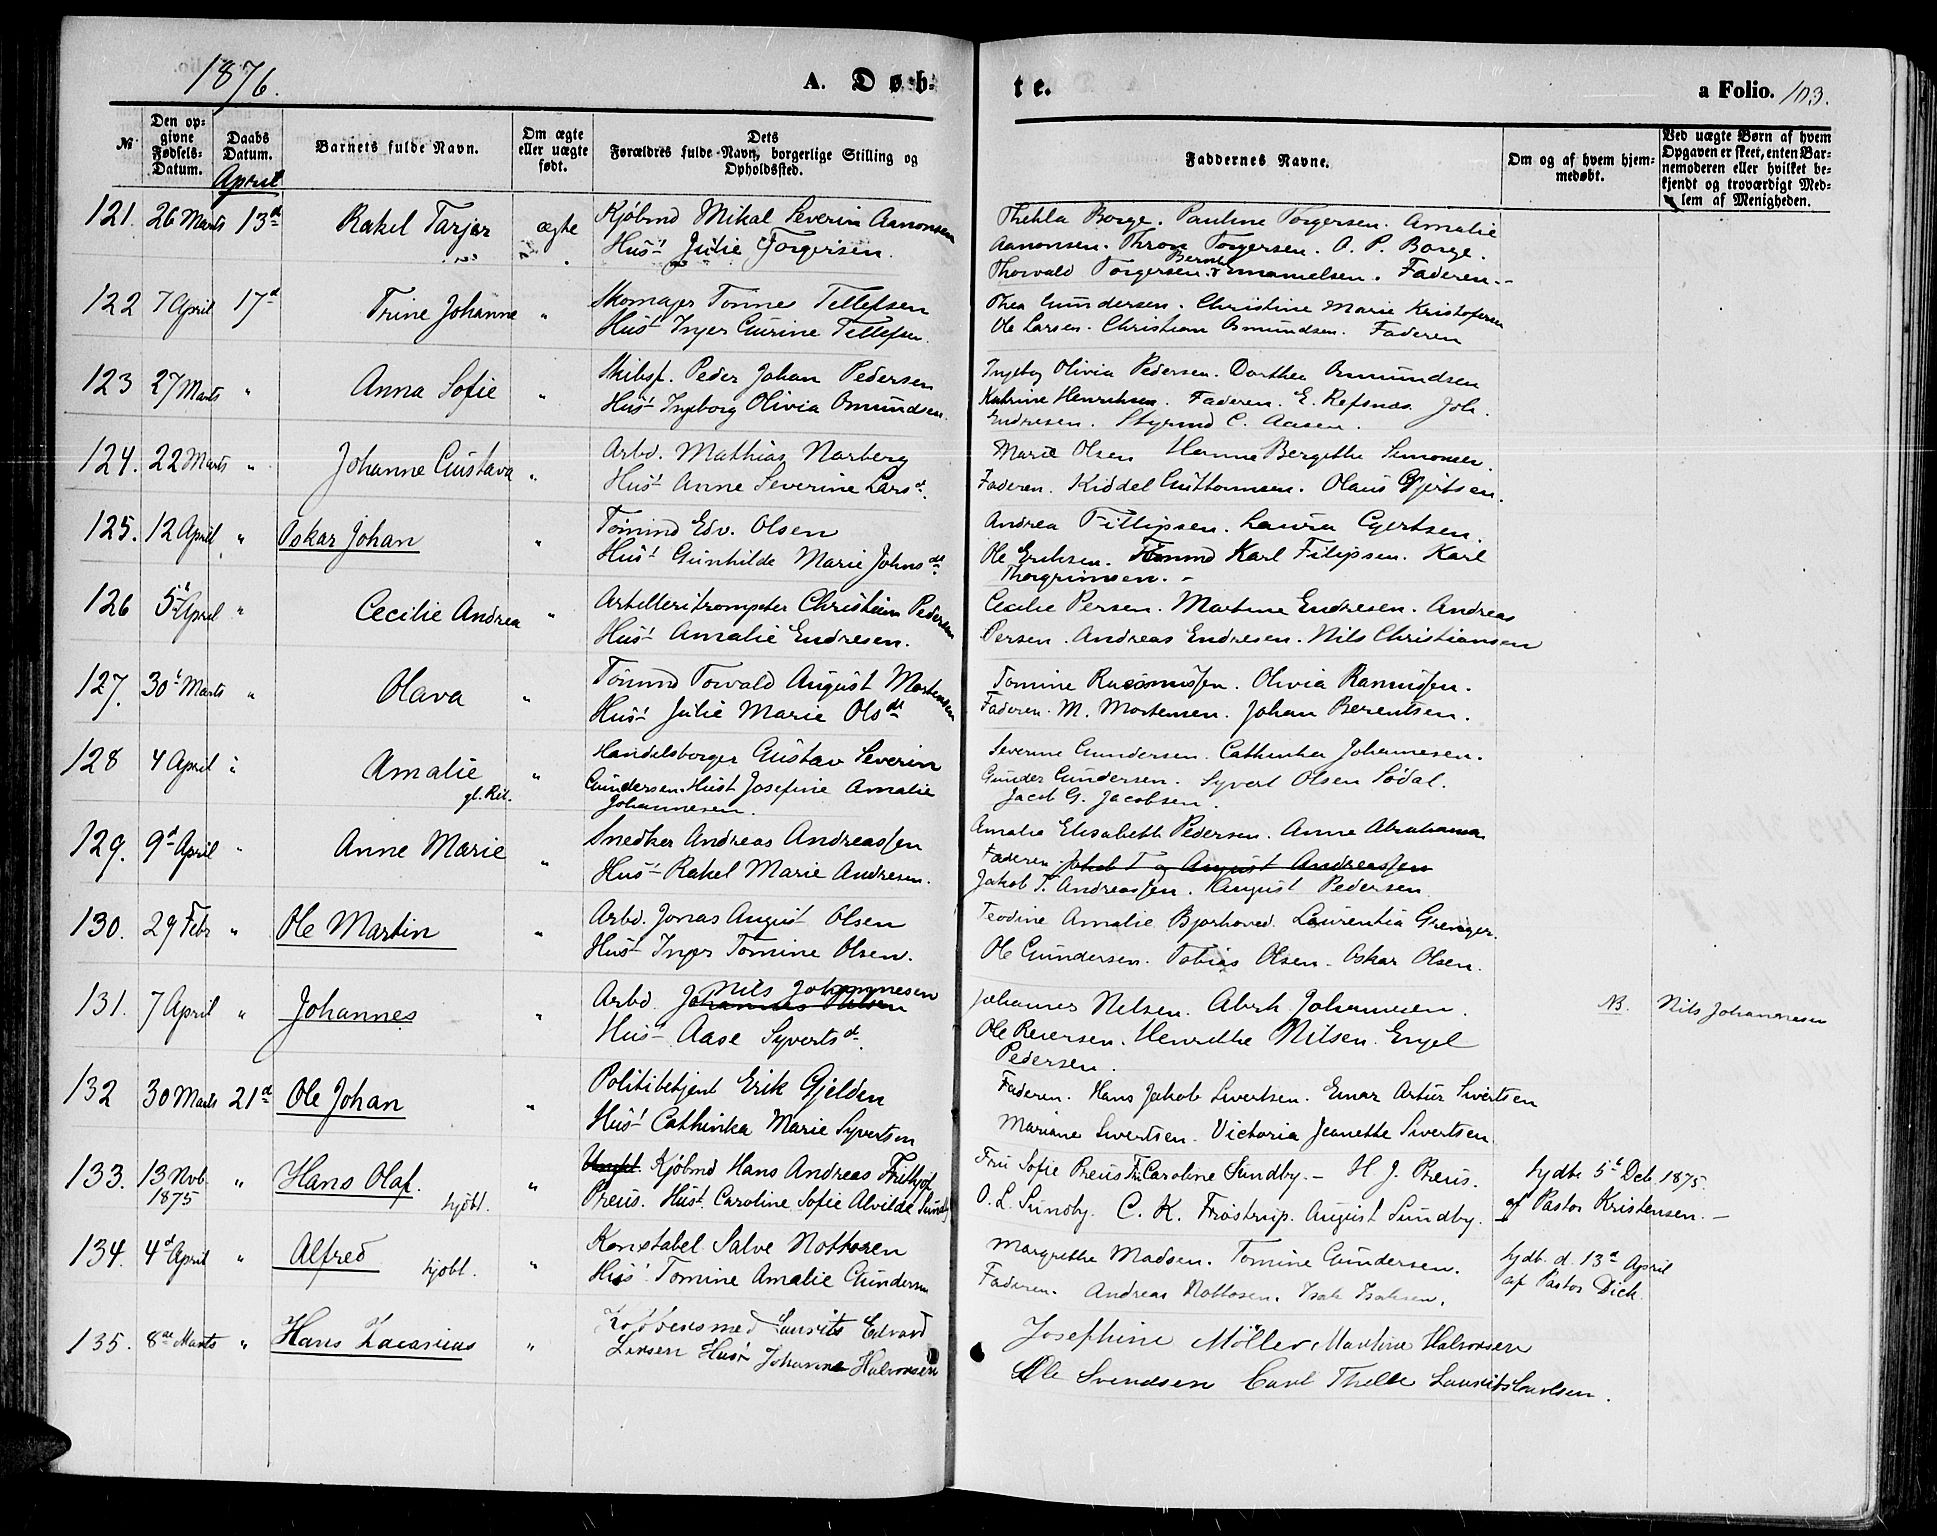 1876.
A. Døb-
te.
a Folio. 103.
No
Den op-
givne
Fødsels-
Datum.
Daabs
Datum.
April
Barnets fulde Navn.
Om ægte
eller uægte
født.
Dets
Forældres fulde Navn, borgerlige Stilling og
Opholdssted.
Faddernes Navne.
Om og af hvem hjem-
medøbt.
Ved uægte Børn af hvem
Opgaven er skeet, enten Bar-
nemoderen eller hvilket be-
kjendt og troværdigt Med-
lem af Menigheden.
121. 26 Marts 13d Rakel Tarjer ægte Kjøbmd Mikal Severin Aanonsen
Hust Julie Torgersen.
Thekla Borge. Pauline Torgersen. Amalie
Aanonsen. Throne Torgersen. O. P. Borge.
Thorvald Torgersen. Bernt Emanuelsen. Faderen.
122 7 April 17d Trine Johanne " Skomager Tønnes Tellefsen
Hust Inger Gurine Tellefsen.
Thea Gundersen. Christine Marie Kristofersen
Ole Larsen. Christian Osmundsen. Faderen
123 27 Marts " Anna Sofie " Skibsf. Peder Johan Pedersen
Hust Ingeborg Olivia Omundsen.
Ingebg Olivia Pedersen. Dorthea Omundsen
Katrine Henriksen. Faderen. E. Refsnæs. Joh.
Endresen. Styrmd C. Aasen.
124. 22 Marts " Johanne Gustava " Arbd. Mathias Norberg
Hust Anne Severine Larsd.
Marie Olsen Hanne Bergitthe Simonsen.
Faderen. Kiddel Guttormsen. Olaus Gjertsen.
125. 12 April " Oskar Johan " Tømmd Edv. Olsen
Hust Gunhilde Marie Johnsdt.
Andrea Fillipsen. Laura Gjertsen.
Ole Eriksen. Tømmd Karl Filipsen. Karl
Thorgrimsen.
126 5t April " Cecilie Andrea " Artilleritrompeter Christian Pedersen
Hust Amalie Endresen.
Cecilie Persen. Martine Endresen. Andreas
Persen. Andreas Endresen. Nils Christiansen
127. 30t Marts " Olava " Tømmd Torvald August Mortensen
Hust Julie Marie Olsdt
Tomine Rasmussen. Olivia Rasmussen.
Faderen. M. Mortensen. Johan Berentsen.
128 4 April " Amalie " Handelsborger Gustav Severin
gl. Rit.
Gundersen. Hust Josefine Amalie
Johannesen.
Severine Gundersen. Cathinka Johannesen.
Gunder Gundersen. Syvert Olsen Sødal.
Jacob G. Jacobsen.
129. 9d April " Anne Marie " Snedker Andreas Andreassen
Hust Rakel Marie Andresen.
Amalie Elisabeth Pedersen. Anne Abrahamsen
Faderen. Jakob T og August Andreassen
Jakob T. Andreassen. August Pedersen
130. 29 Febr " Ole Martin " Arbd. Jonas August Olsen
Hust Inger Tomine Olsen.
Teodine Amalie Bjorhoved. Laurentia Greniger.
Ole Gundersen. Tobias Olsen. Oskar Olsen.
131. 7 April " Johannes " Arbd. Johannes Nilsen Nils Johannesen
Hust Aase Syvertsd.
Johannes Nelsen. Abrh. Johannesen.
Ole Reiersen. Henrikke Nilsen. Engel
Pedersen.
NB. Nils Johannesen
132 30 Marts 21d Ole Johan " Politibetjent Erik Gjelden
Hust Cathinka Marie Syvertsen
Faderen. Hans Jakob Sivertsen. Einar Artur Sivertsen
Mariane Sivertsen. Victoria Jeanette Sivertsen
133. 13 Novb. " Hans Olaf. hjdbt. " Kjøbmd Hans Andreas Frithjof
1875
Preus. Hust. Caroline Sofie Alvilde Sundby
Fru Sofie Preus Fr. Caroline Sundby. — H. J. Preus.
O. L. Sundby. C. K. Frøstrup. August Sundby.
hjdbt. 5t Deb. 1875.
af Pastor Kristensen. —
134. 4d April " Alfred hjobt. " Konstabel Salve Nottosen
Hust. Tomine Amalie Gundersen
Margrethe Madsen. Tomine Gundersen.
Faderen. Andreas Nottosen. Isak Isaksen.
hjdb. d. 13d April
af Pastor Dick.
135. 8de Marts " Hans Zacarias " Kobbersmed Laurits Edvard
Larsen Hust Johanne Halvorsen
Josephine Möller, Martine Halvorsen
Ole Svendsen Carl Thelle Laurits Carlsen.